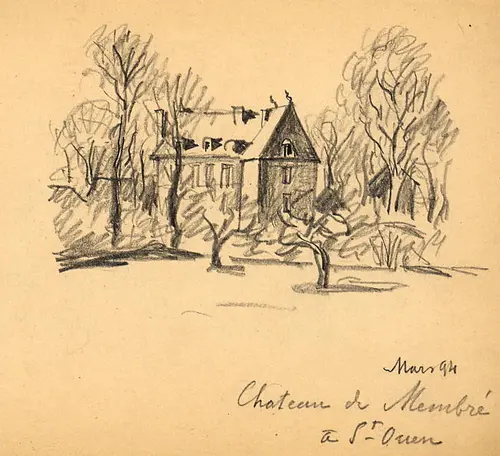 Mars 94
Chateau de Membré
à St Ouen